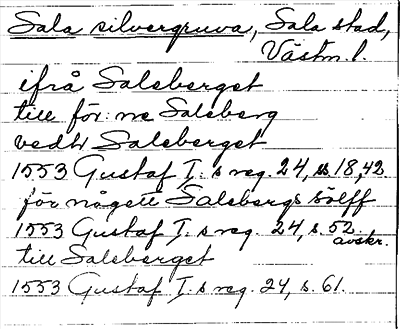 Sala silvergruva, Sala stad,
Västm. l.
ifrå Salsberget
till för: ne Salsberg
vedh Salsberget
1553 Gustaf I:s reg. 24, ss. 18, 42
för någett Salsbergs sölff
1553 Gustaf I:s reg. 24, s. 52
avskr.
till Salsberget
1553 Gustaf I:s reg. 24, s. 61.